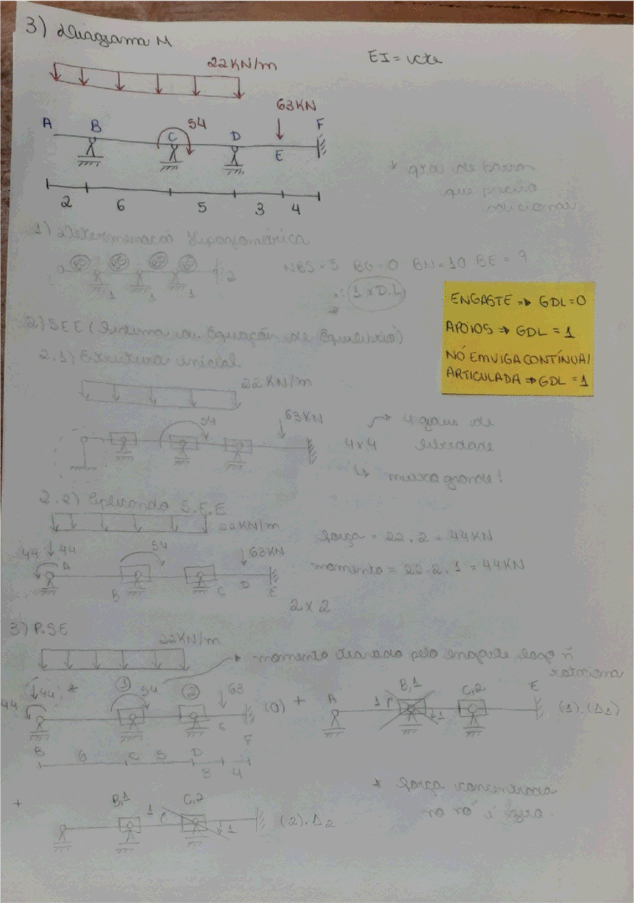 3) Diagrama M
22KN/m
EI = cte
63KN
A B C 54 D E F
2 6 5 3 4
* grau de
que
adicionais
1) Determinação
NBS=5 BG=0 BN=10 BE=9
∴ 1xD.I
ENGASTE → GDL=0
APOIOS → GDL=1
NÓ EM VIGA CONTÍNUA/
ARTICULADA → GDL=1
2) SEE (Sistema ou Equação de Equilíbrio)
2.1) Estrutura inicial
22KN/m
54 63KN
→ 4 graus de
4x4 liberdade
↳ muito grande!
2.2) Aplicando S.E.E
22KN/m
força = 22.2 = 44KN
44 ↓44 A 54 63KN
momento = 22.2.1 = 44KN
B C D E
2x2
3) P.SE
22KN/m
→ momento pelo engaste logo ñ
44 ↓44 * 1 54 2 63 C F (0) +
A 1 B,1 1 C,2 E (1).(Δ1)
B 6 C 5 D 3 4
* força concentrada
no nó é zero
+ B,1 1 C,2 1 (2).Δ2